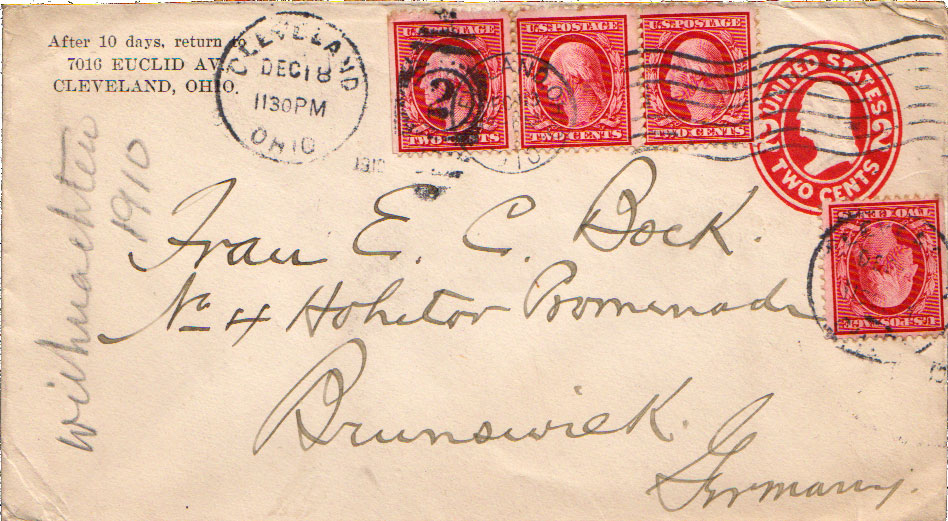 After 10 days, return
7016 EUCLID AV
CLEVELAND, OHIO.
CLEVELAND
DEC 18
1130 PM
OHIO
1910
U.S. POSTAGE
TWO CENTS
2
U.S. POSTAGE
TWO CENTS
U.S. POSTAGE
TWO CENTS
UNITED STATES
2 2
TWO CENTS
TWO CENTS
Weihnachten
1910
Frau E. C. Bock.
No 4 Hohetor Promenade
Brunswick.
Germany.